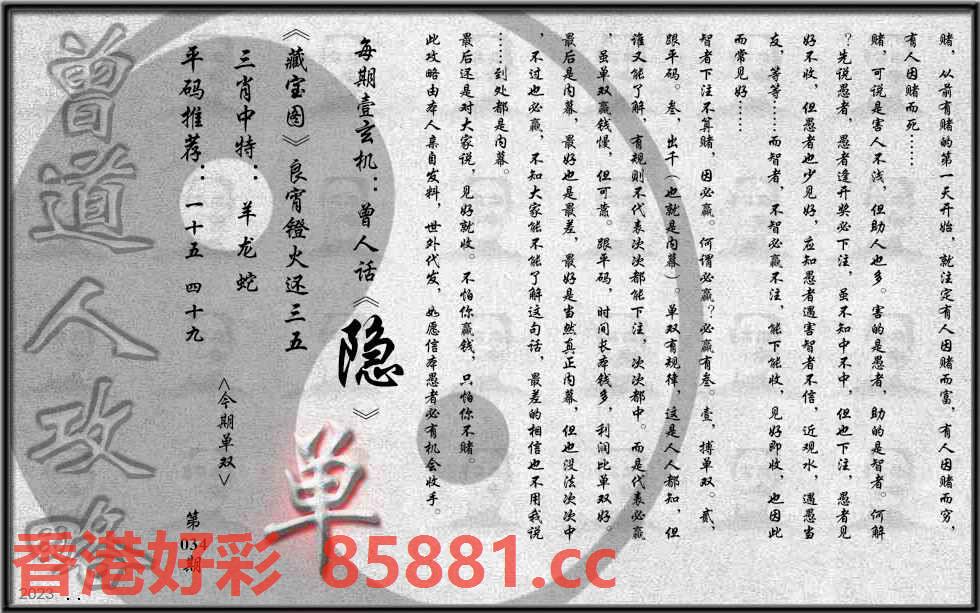 赌，从前有赌的第一天开始，就注定有人因赌而富，有人因赌而穷，
有人因赌而死……
赌，可说是害人不浅，但助人也多。害的是愚者，助的是智者。何解
？先说愚者，愚者逢开奖必下注，虽不知中不中，但也下注，愚者见
好不收，但愚者也少见好，应知愚者遇害智者不信，近观水，遇愚当
友，等等……而智者，不智必赢不注，能下能收，见好即收，也因此
而常见好……
智者下注不算赌，因必赢。何谓必赢？必赢有叁。壹，搏单双。贰，
跟平码。叁，出千（也就是内幕）。单双有规律，这是人人都知，但
谁又能了解，有规则不代表次次都能下注，次次都中。而是代表必赢
，虽单双赢钱慢，但可蓄。跟平码，时间长本钱多，利润比单双好。
最后是内幕，最好也是最差，最好是当然真正内幕，但也没法次次中
，不过也必赢，不知大家能不能了解这句话，最差的相信也不用我说
……到处都是内幕。
最后还是对大家说，见好就收。不怕你赢钱，只怕你不赌。
此攻略由本人亲自发料，世外代发，如愿信本愚者必有机会收手。
每期壹玄机：曾人话《隐》
《藏宝图》良宵镫火还三五
三肖中特：羊龙蛇
平码推荐：一十五 四十九
<今期单双>
单
第034期
曾道人攻略
香港好彩 85881.cc
2023